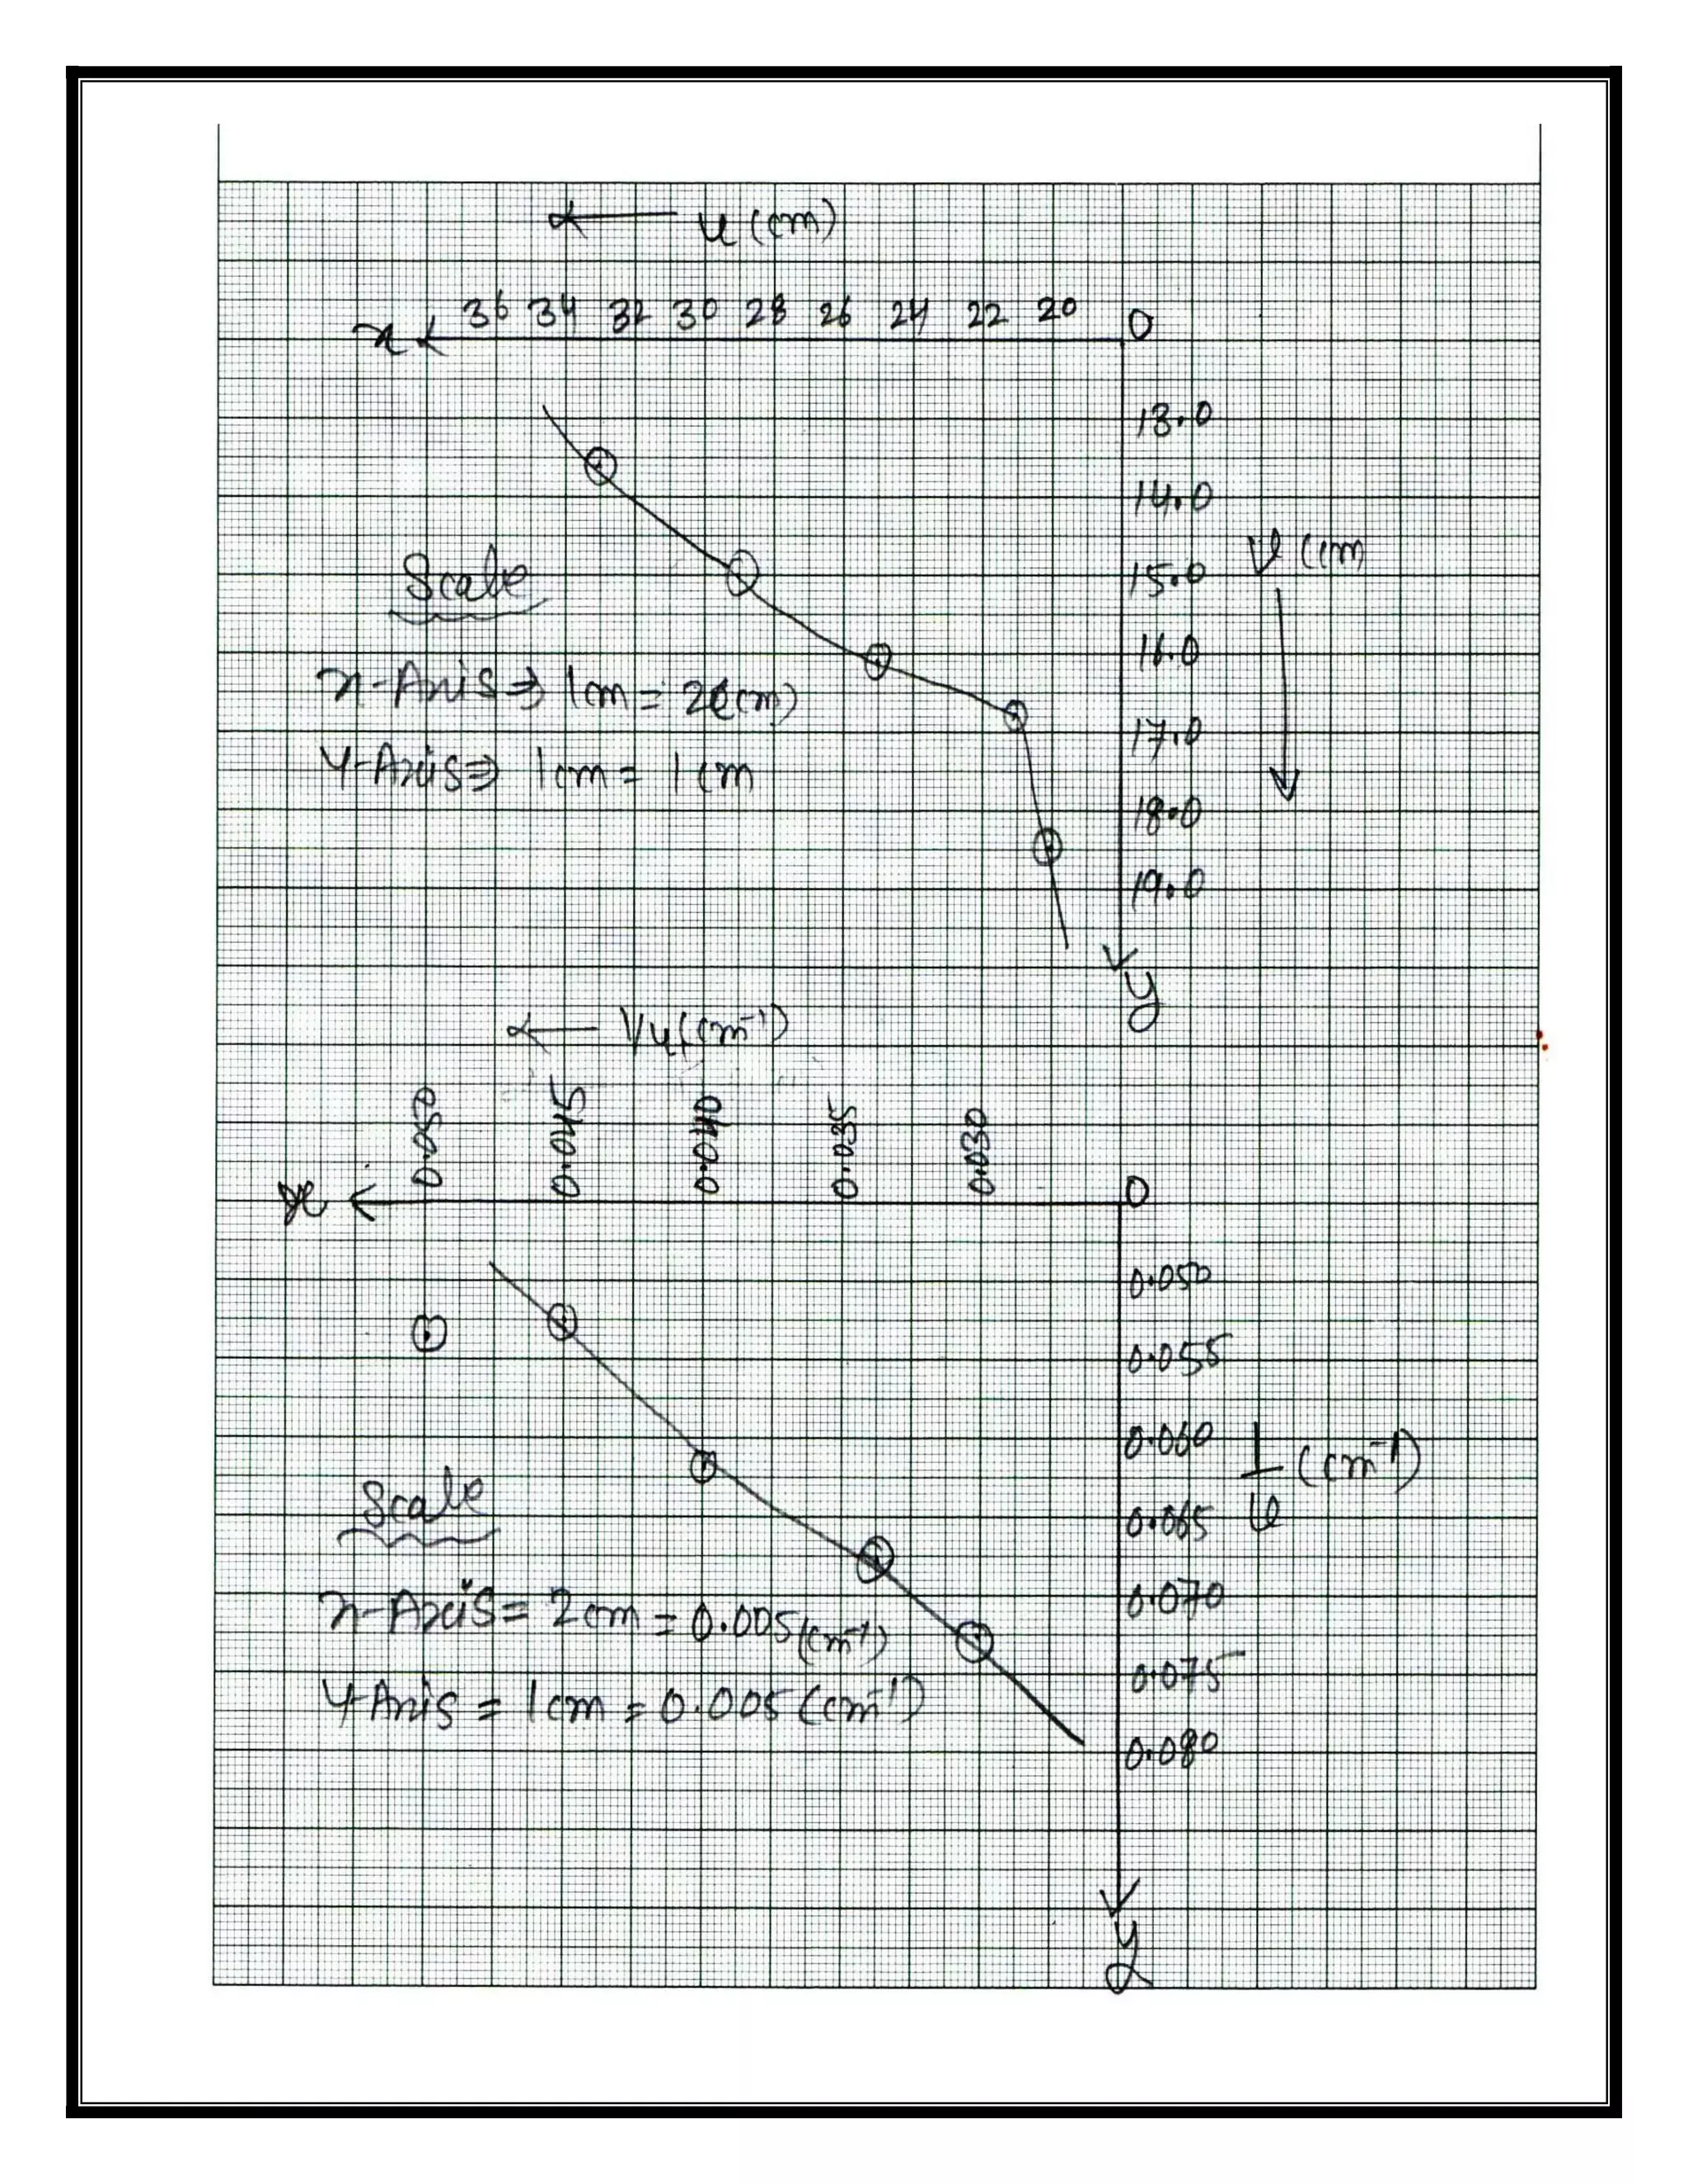 u (cm)
x 36 34 32 30 28 26 24 22 20 0
13.0
14.0
v (cm
15.0
Scale
16.0
x-Axis ⇒ 1cm = 2(cm)
17.0
Y-Axis ⇒ 1cm = 1cm
18.0
19.0
y
1/u (cm⁻¹)
x 0.050 0.045 0.040 0.035 0.030 0
0.050
0.055
0.060
1/v (cm⁻¹)
0.065
Scale
0.070
x-Axis = 2cm = 0.005 (cm⁻¹)
0.075
Y-Axis = 1cm = 0.005 (cm⁻¹)
0.080
y